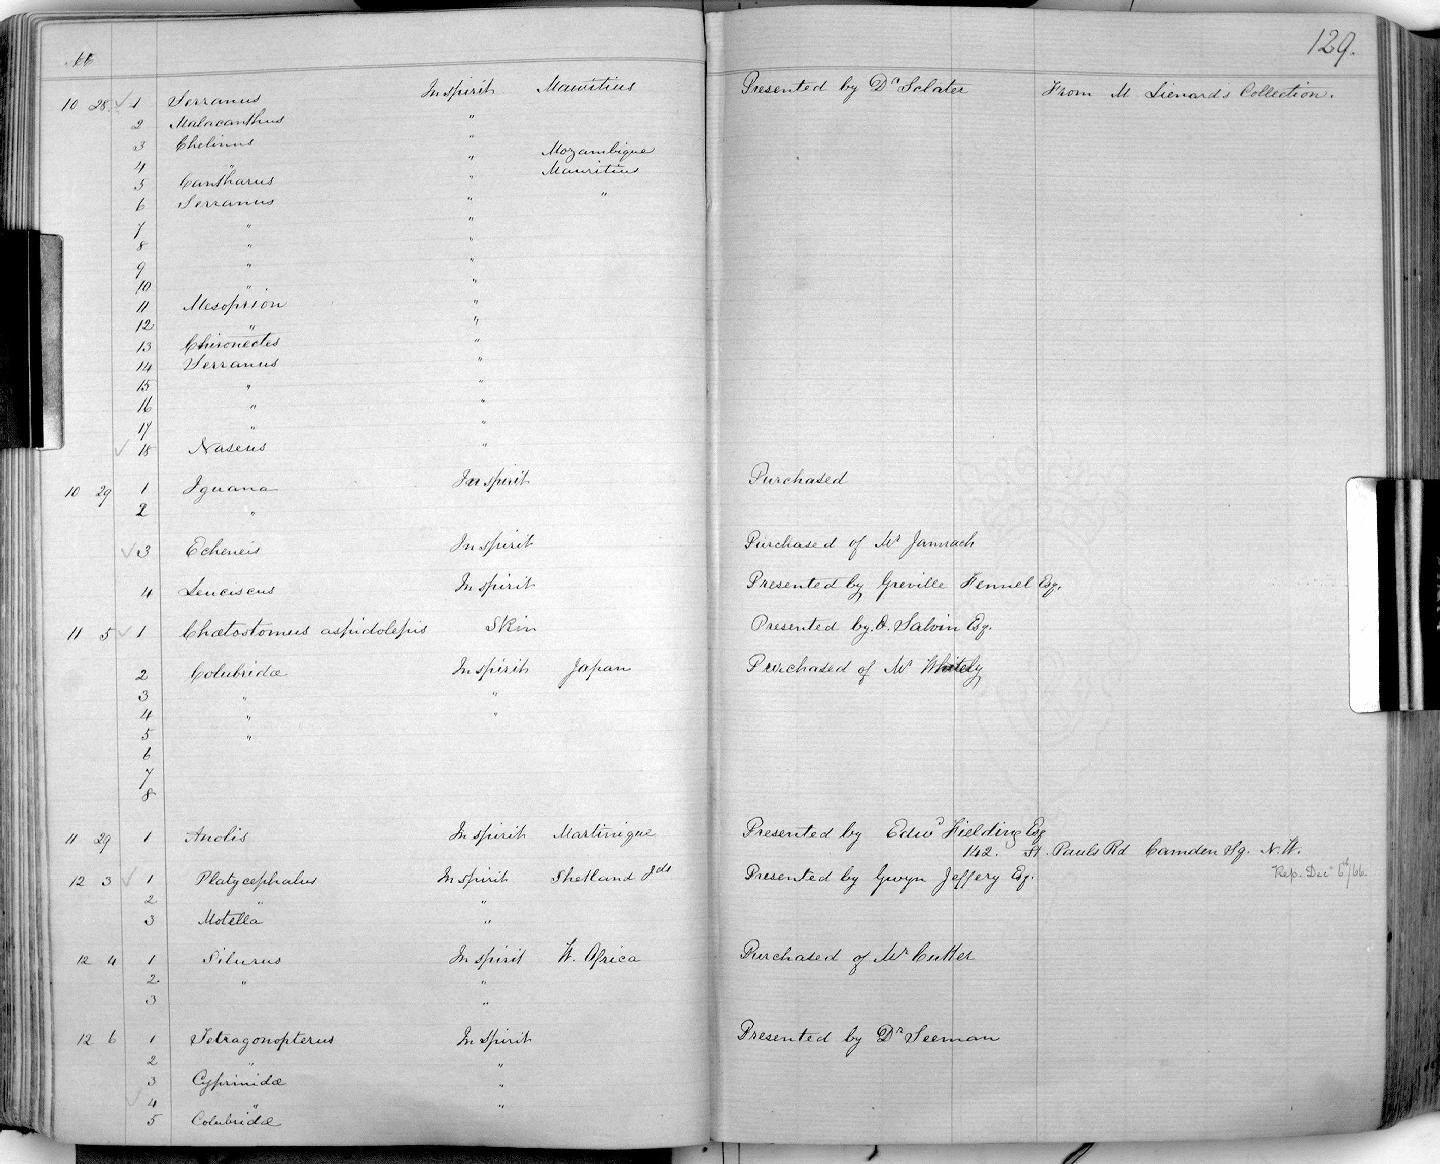 66
129.
10 28 1 Serranus In spirit Mauritius Presented by Dr Sclater From M Lienards Collection.
2 Malacanthus "
3 Chelinus "
4 " " Mozambique
5 Cantharus " Mauritius
6 Serranus " "
7 " "
8 " "
9 " "
10 " "
11 Mesoprion "
12 " "
13 Chironectes "
14 Serranus "
15 " "
16 " "
17 " "
18 Naseus "
10 29 1 Iguana In spirit Purchased
2 "
3 Echeneis In spirit Purchased of Mr Jamrach
4 Leuciscus In spirit Presented by Greville Fennel Esq.
11 5 1 Chætostomus aspidolepis Skin Presented by O. Salvin Esq.
2 Colubridæ In spirit Japan Purchased of Mr Whitely
3 " "
4 " "
5 "
6
7
8
11 29 1 Anolis In spirit Martinique Presented by Edwd Fielding Esq
142. St. Pauls Rd Camden Sq. N.W.
12 3 1 Platycephalus In spirit Shetland Ids Presented by Gwyn Jeffery Esq. Rep. Dec 6th/66
2 " "
3 Motella "
12 4 1 Silurus In spirit W. Africa Purchased of Mr Cutter
2 " "
3 "
12 6 1 Tetragonopterus In spirit Presented by Dr Seeman
2 " "
3 Cyprinidæ "
4 " "
5 Colubridæ